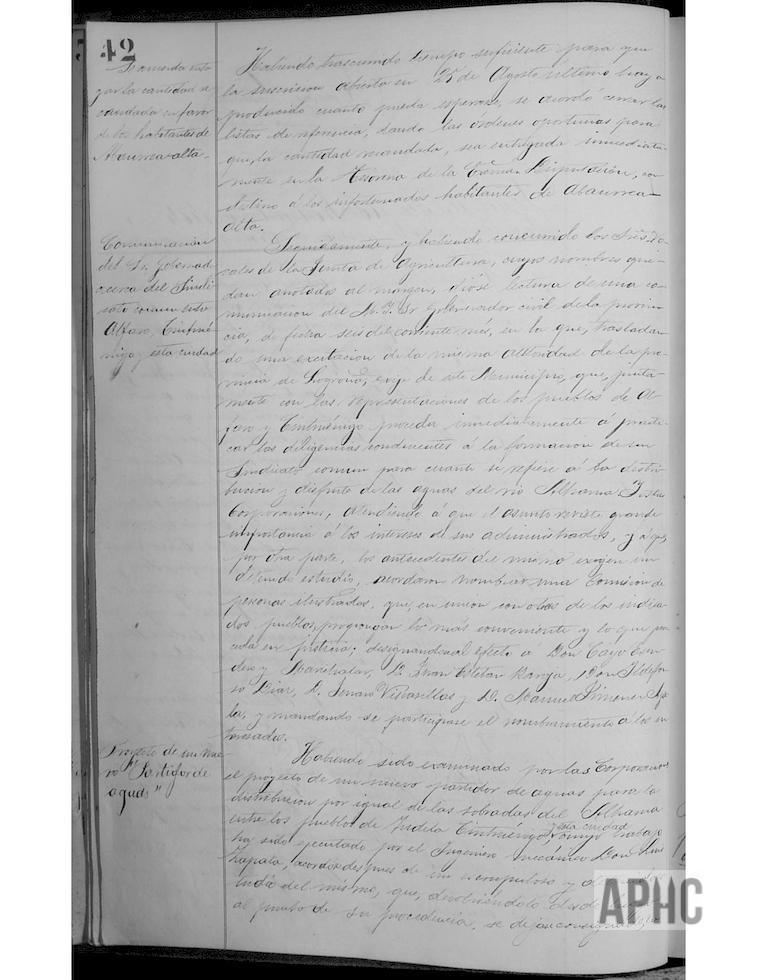 42
Se acuerda entre-
gar la cantidad re-
caudada en favor
de los habitantes de
Abaurrea-alta.
Habiendo trascurrido tiempo suficiente para que
la suscricion abierta en 25 de Agosto último haya
producido cuanto pueda esperarse, se acordó cerrar las
listas de referencia, dando las órdenes oportunas para
que, la cantidad recaudada, sea entregada inmediata-
mente en la Tesoreria de la Excma. Diputación, con
destino á los infortunados habitantes de Abaurrea-
alta.
Comunicación
del Sr. Gobernador
acerca del Sindi-
cato comun entre
Alfaro, Cintrué-
nigo y esta ciudad
Seguidamente, y habiendo concurrido los Sres. Vo-
cales de la Junta de Agricultura, cuyos nombres que-
dan anotados al margen, dióse lectura de una co-
municacion del M. Y. Sr. Gobernador civil de la provin-
cia, de fecha seis del corriente mes, en la que, trasladan-
do una excitacion de la misma autoridad de la pro-
vincia de Logroño, exije de este Municipio, que, junta-
mente con las representaciones de los pueblos de Al-
faro y Cintruénigo proceda inmediatamente á practi-
car las diligencias conducentes á la formacion de un
Sindicato comun para cuanto se refiere á la distri-
bucion y disfrute de las aguas del rio Alhama. Y estas
Corporaciones, atendiendo á que el asunto reviste grande
importancia á los intereses de sus administrados, y á que,
por otra parte, los antecedentes del mismo exigen un
detenido estudio, acordaron nombrar una Comision de
personas ilustradas, que, en union con otras de los indica-
dos pueblos, propongan lo más conveniente y lo que pro-
ceda en justicia; designando al efecto á Don Cayo
y D. Juan Esteban Don Ildefon-
so Diaz, D. y D. Manuel Jimenez
y mandando se participase el nombramiento á los in-
teresados.
Proyecto de un nue-
vo "Partidor de
aguas"
Habiendo sido examinado por las Corporaciones
el proyecto de un nuevo partidor de aguas para la
distribucion por igual de las sobradas del Alhama
entre los pueblos de Tudela Cintruénigo y esta ciudad cuyo trabajo
ha sido ejecutado por el Ingeniero mecánico Don Luis
Zapata, acordóse despues de un escrupuloso y
del mismo, que, devolviéndolo
al punto de su procedencia, se
APHC